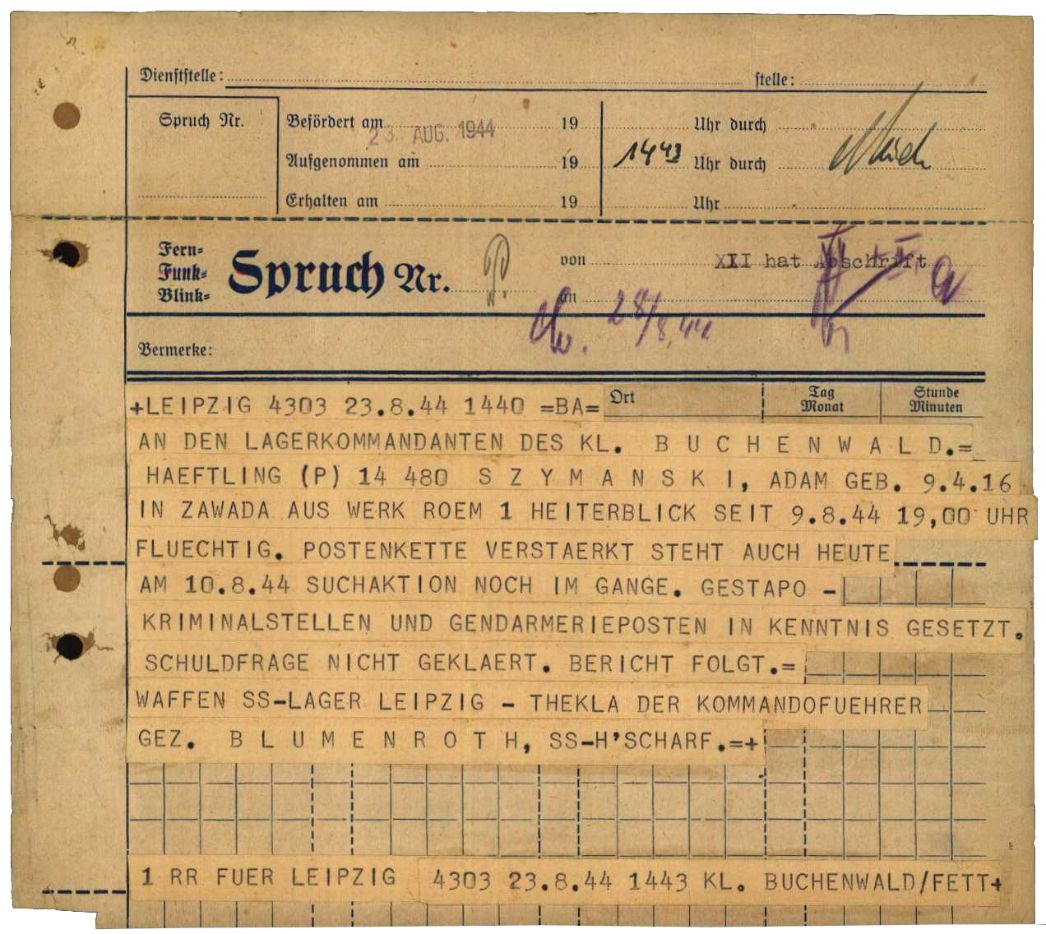 Dienststelle: stelle:
Spruch Nr. Befördert am 23. AUG. 1944 19 Uhr durch
Aufgenommen am 19 1443 Uhr durch
Erhalten am 19 Uhr
Fern=
Funk=
Blink=
Spruch Nr. von XII hat Abschrift
an
28/8.44
Vermerke:
+LEIPZIG 4303 23.8.44 1440 =BA= Ort Tag Monat Stunde Minuten
AN DEN LAGERKOMMANDANTEN DES KL. B U C H E N W A L D.=
HAEFTLING (P) 14 480 S Z Y M A N S K I, ADAM GEB. 9.4.16
IN ZAWADA AUS WERK ROEM 1 HEITERBLICK SEIT 9.8.44 19,00 UHR
FLUECHTIG. POSTENKETTE VERSTAERKT STEHT AUCH HEUTE
AM 10.8.44 SUCHAKTION NOCH IM GANGE. GESTAPO -
KRIMINALSTELLEN UND GENDARMERIEPOSTEN IN KENNTNIS GESETZT.
SCHULDFRAGE NICHT GEKLAERT. BERICHT FOLGT.=
WAFFEN SS-LAGER LEIPZIG - THEKLA DER KOMMANDOFUEHRER
GEZ. B L U M E N R O T H, SS-H'SCHARF.=+
1 RR FUER LEIPZIG 4303 23.8.44 1443 KL. BUCHENWALD/FETT+